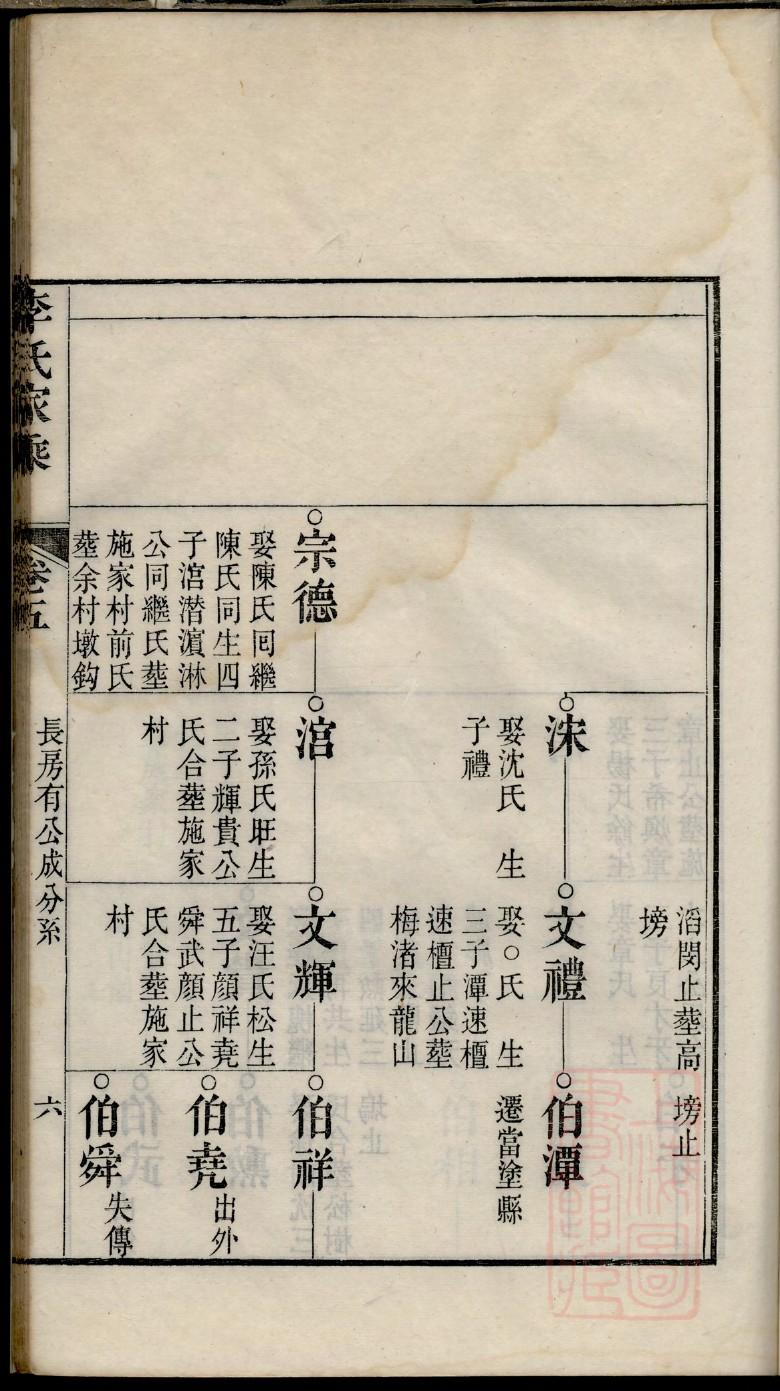 滔閔止塟高
塝
塝止
洙
娶沈氏 生
子禮
文禮
娶○氏 生
三子潭速櫃
速櫃止公塟
梅渚來龍山
伯潭
遷當塗縣
宗德
娶陳氏囘繼
陳氏同生四
子涫潛濵淋
公同繼氏塟
施家村前氏
塟余村墩鈎
涫
娶孫氏旺生
二子輝貴公
氏合塟施家
村
文輝
娶汪氏松生
五子顔祥堯
舜武顔止公
氏合塟施家
村
伯祥
伯堯
出外
伯舜
失傳
李氏家乘
卷五
長房有公成分系
六